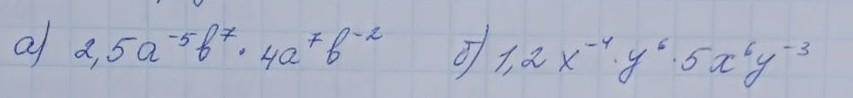 а) 2,5a⁻⁵b⁷ · 4a⁷b⁻² б) 1,2x⁻⁴ · y⁶ · 5x⁶y⁻³